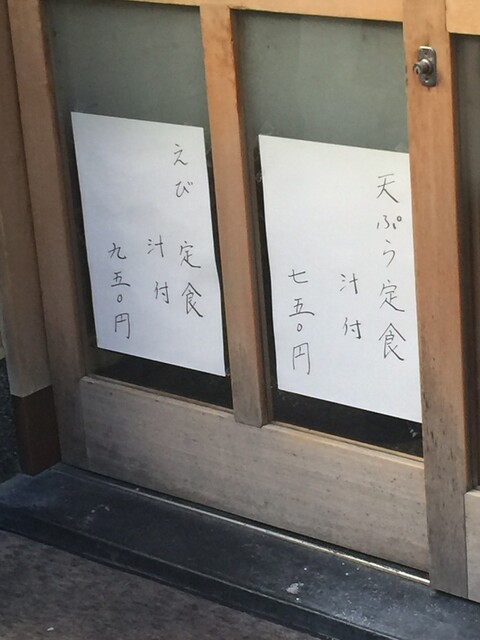 天ぷら定食
汁付
七五〇円
えび定食
汁付
九五〇円